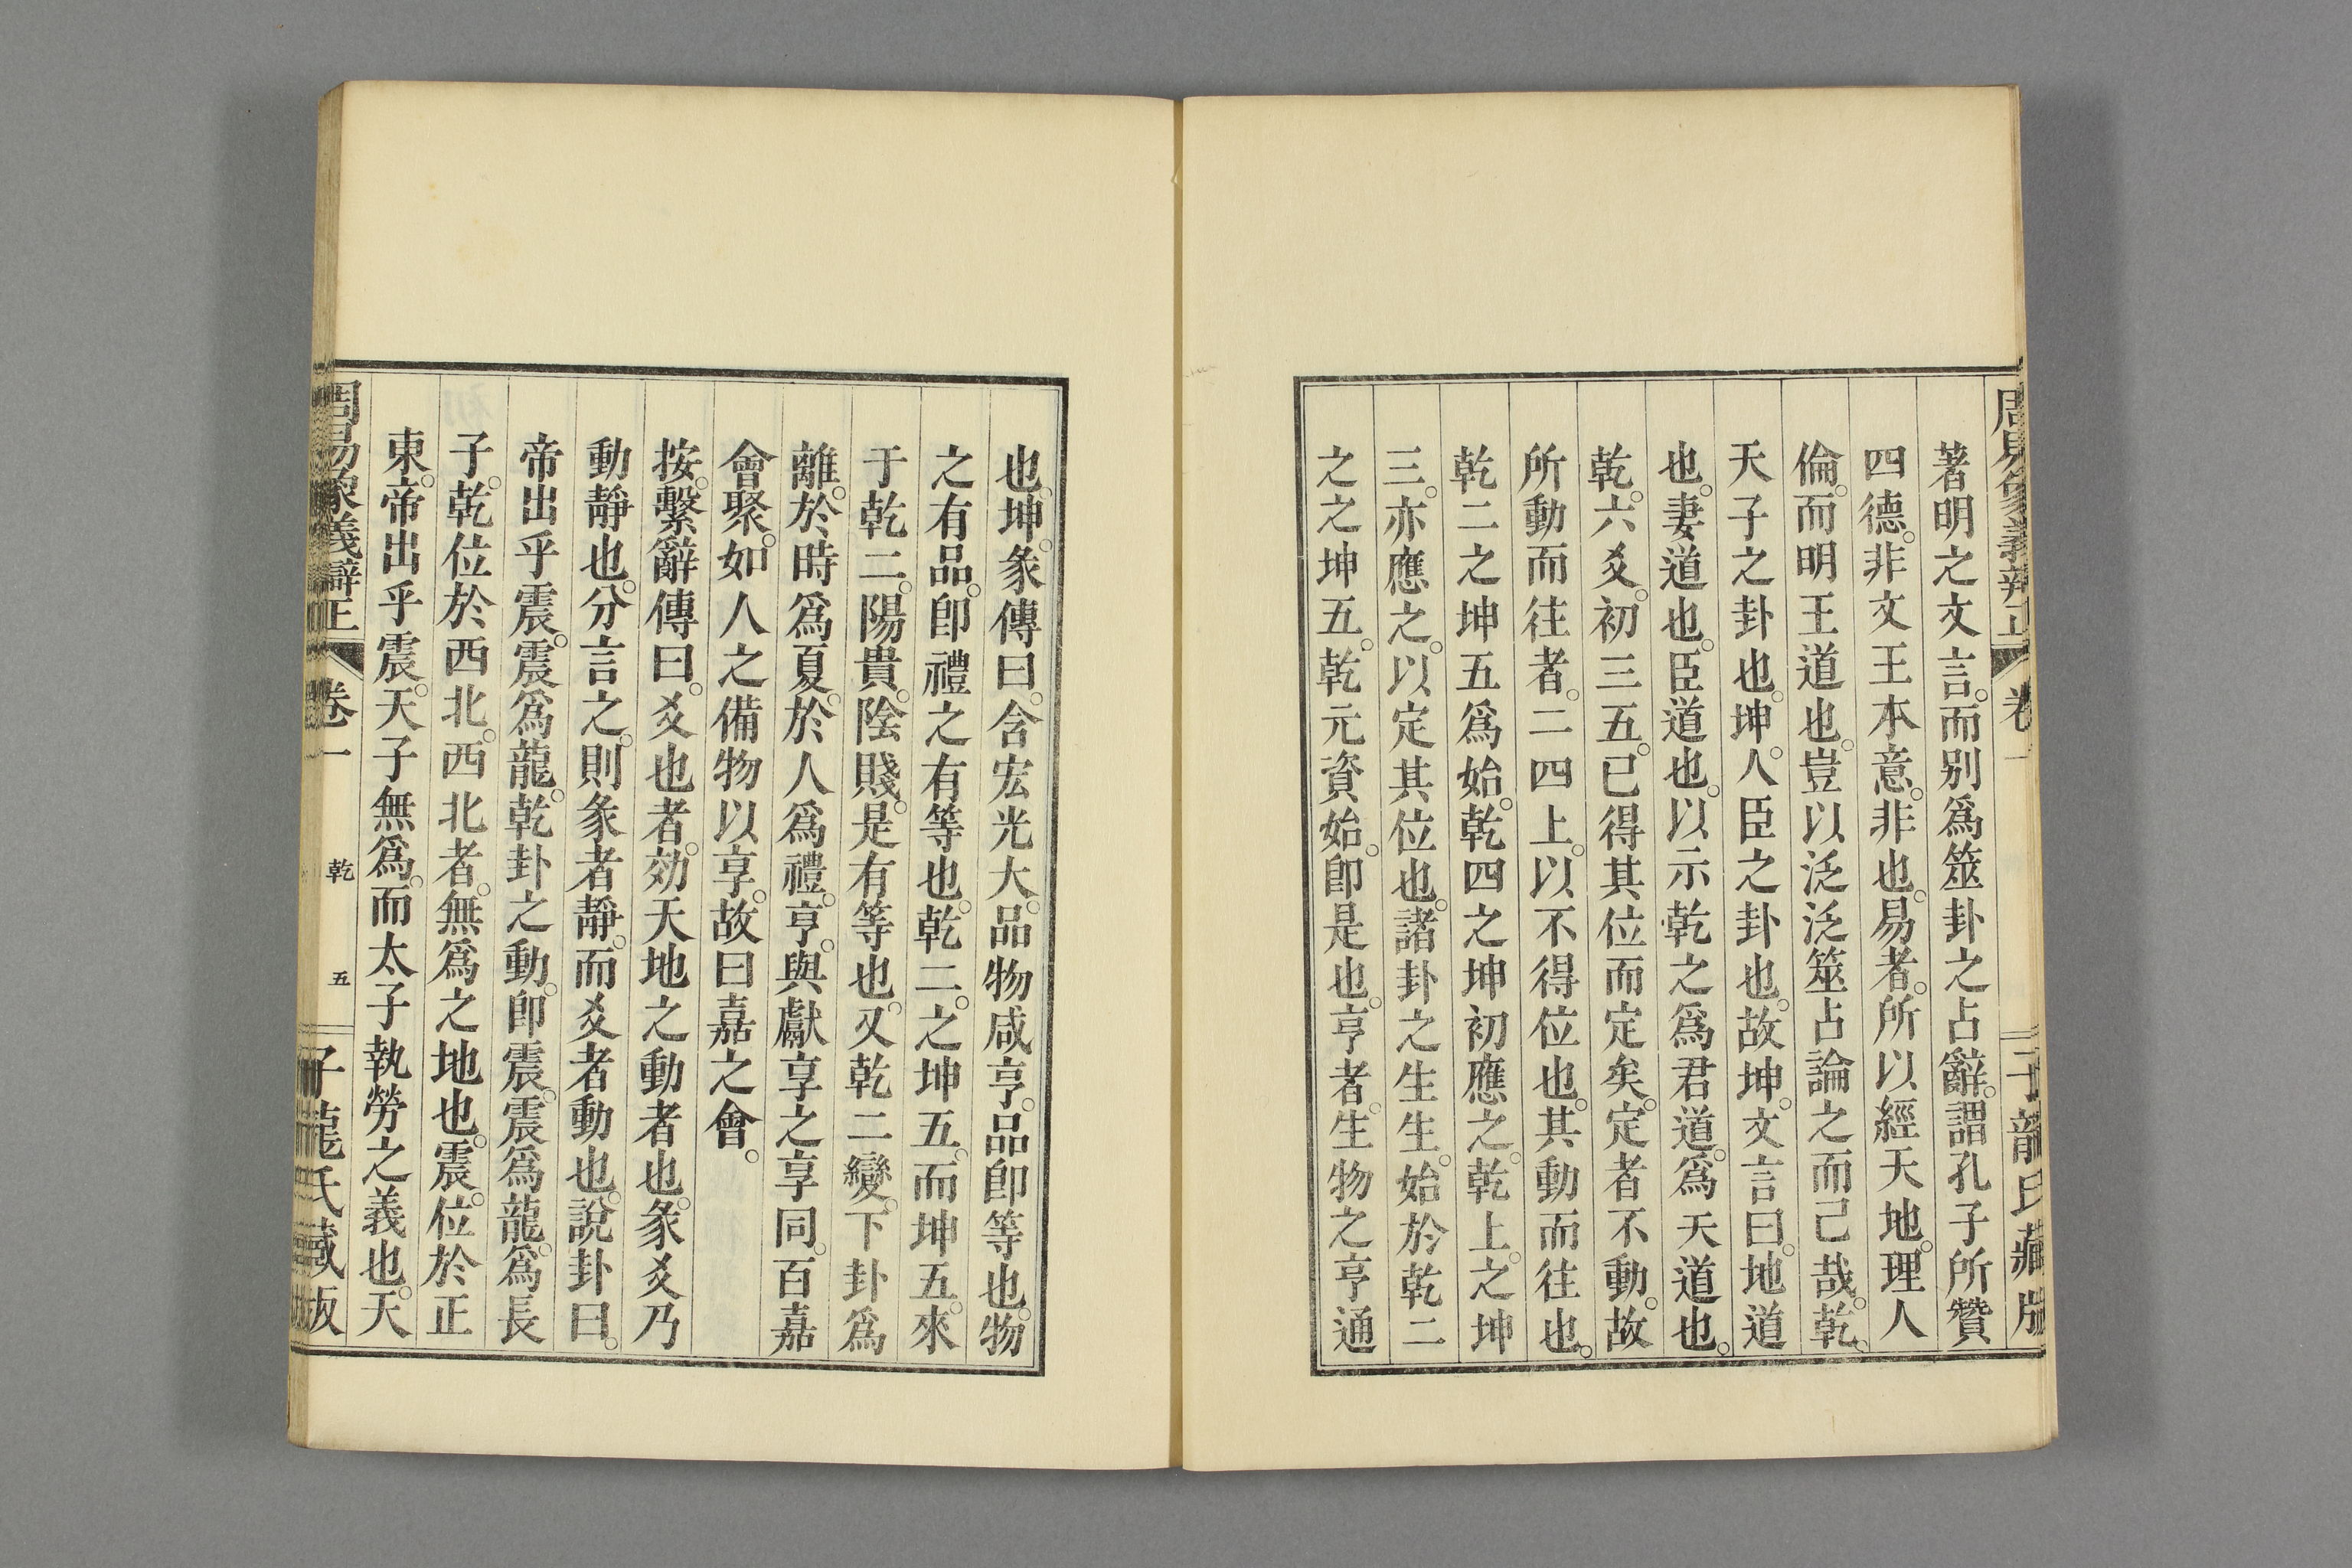 周易象義辯正 卷一 子龍氏藏版
著明之文言。而別爲筮卦之占辭。謂孔子所贊
四德。非文王本意。非也。易者。所以經天地。理人
倫。而明王道也。豈以泛泛筮占論之而己哉。乾。
天子之卦也。坤。人臣之卦也。故坤。文言曰。地道
也。妻道也。臣道也。以示乾之爲君道。爲天道也。
乾。六爻。初三五。已得其位而定矣。定者不動。故
所動而往者。二四上。以不得位也。其動而往也。
乾二之坤五爲始。乾四之坤初應之。乾上。之坤
三。亦應之。以定其位也。諸卦之生生。始於乾二
之之坤五。乾元資始。卽是也。亨者。生物之亨通
也。坤。彖傳曰。含宏光大。品物咸亨。品卽等也。物
之有品。卽禮之有等也。乾二。之坤五。而坤五。來
于乾二。陽貴。陰賤。是有等也。又乾二變。下卦爲
離。於時爲夏。於人爲禮。亨。與獻享之享同。百嘉
會聚。如人之備物以享。故曰嘉之會。
按。繫辭傳曰。爻也者。効天地之動者也。彖爻乃
動靜也。分言之。則彖者靜。而爻者動也。說卦曰。
帝出乎震。震爲龍。乾卦之動。卽震。震爲龍。爲長
子。乾位於西北。西北者。無爲之地也。震。位於正
東。帝出乎震。天子無爲。而太子執勞之義也。天
周易象義辯正 卷一 乾 五 子龍氏藏版